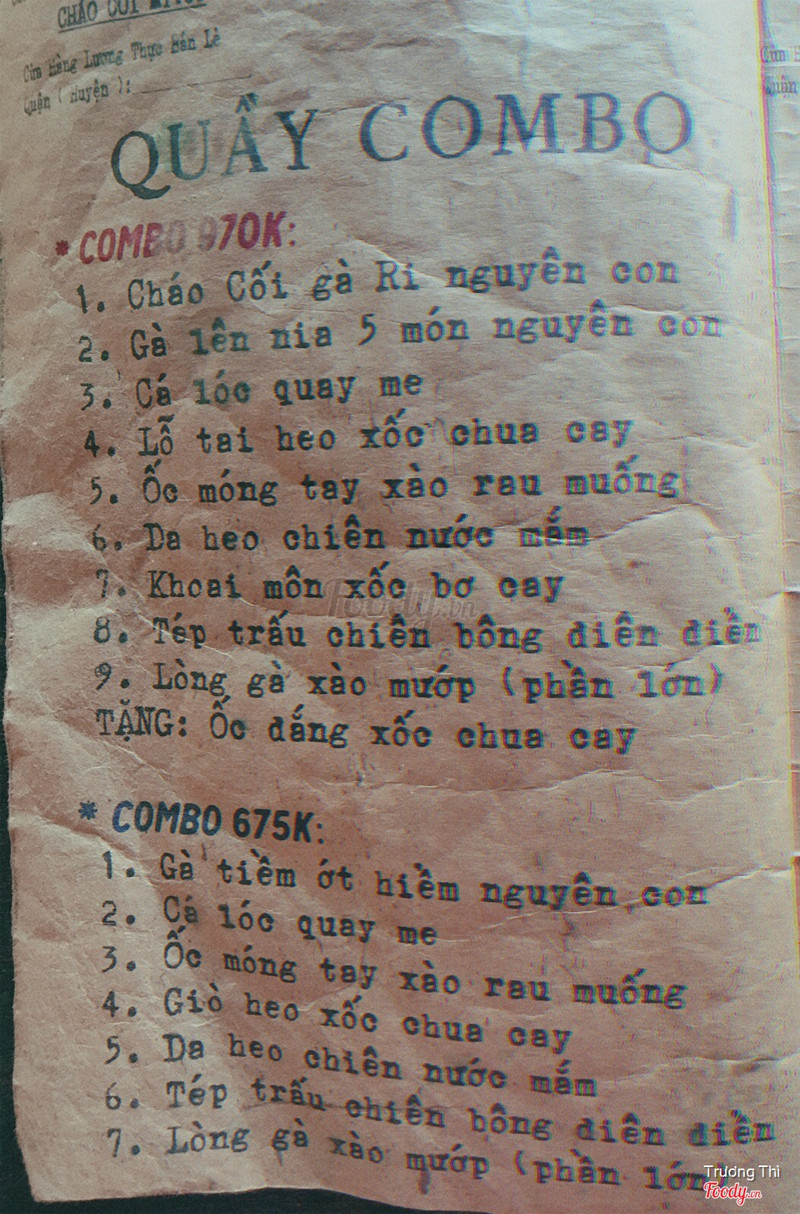 CHÁO CỐI
Cửa Hàng Lương Thực Bán Lẻ
Quận ( Huyện ):
QUẦY COMBO
* COMBO 970K:
1. Cháo Cối gà Ri nguyên con
2. Gà lên nia 5 món nguyên con
3. Cá lóc quay me
4. Lỗ tai heo xốc chua cay
5. Ốc móng tay xào rau muống
6. Da heo chiên nước mắm
7. Khoai môn xốc bơ cay
8. Tép trấu chiên bông điên điền
9. Lòng gà xào mướp (phần lớn)
TẶNG: Ốc đắng xốc chua cay
* COMBO 675K:
1. Gà tiềm ớt hiềm nguyên con
2. Cá lóc quay me
3. Ốc móng tay xào rau muống
4. Giò heo xốc chua cay
5. Da heo chiên nước mắm
6. Tép trấu chiên bông điên điền
7. Lòng gà xào mướp (phần lớn)
Foody.vn
Trương Thi
Foody.vn